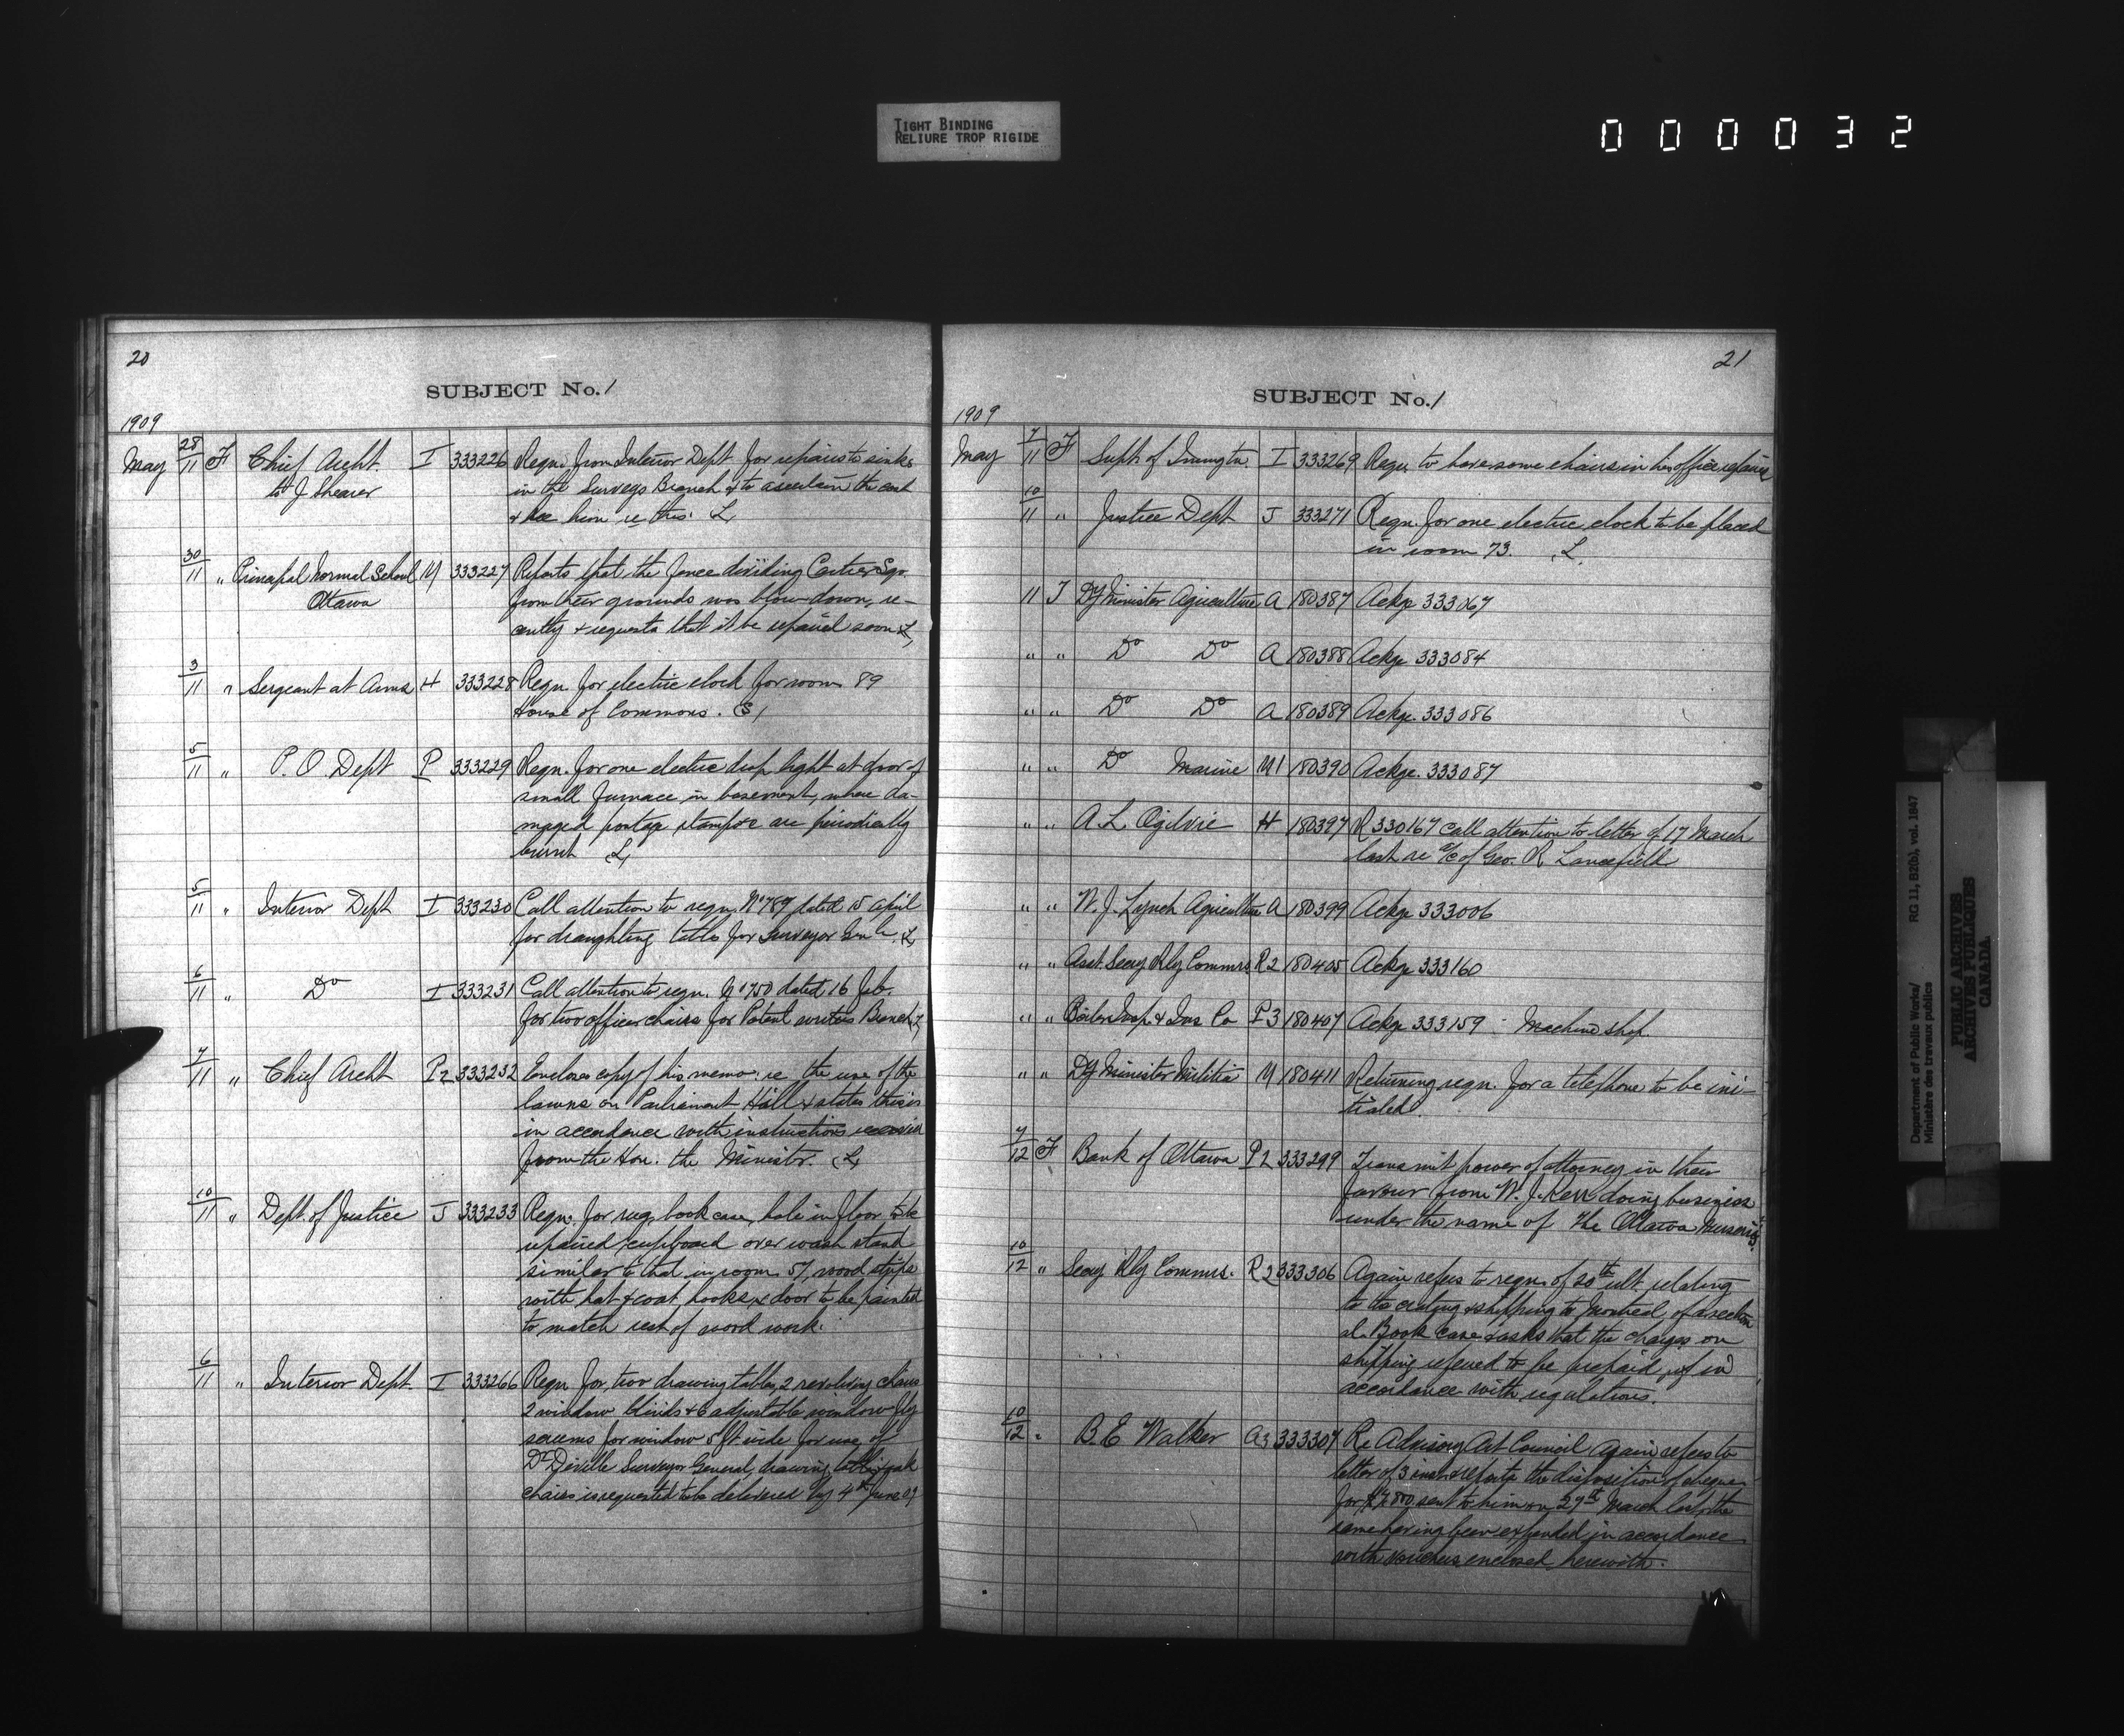 TIGHT BINDING
RELIURE TROP RIGIDE
000032
20
SUBJECT No. 1
1909
May 28/11 F Chief Archt. I 333226 Reqn. from Interior Dept for repairs to sinks
to J Shearer in the Surveys Branch & to ascertain the cost
& see him re this. L
30/11 " Principal Normal School M 333227 Reports that the fence dividing Cartier Sqr.
Ottawa from their grounds was blow down, re-
cently & requests that it be repaired soon L
3/11 " Sergeant at Arms H 333228 Reqn for electric clock for room 89
House of Commons.
5/11 " P. O. Dept P 333229 Reqn. for one electric drop light at door of
small furnace in basement, where da-
maged postage stamps &c are periodically
burnt L
5/11 " Interior Dept I 333230 Call attention to reqn. No 789 dated 15 April
for draughting table for Surveyor Genl. L
6/11 " Do I 333231 Call attention to reqn. No 750 dated 16 Feb.
for two office chairs for Patent writers Branch L
7/11 " Chief Archt P2 333232 Encloses copy of his memo: re the use of the
lawns on Parliament Hill & states this is
in accordance with instructions received
from the Hon. the Minister. L
10/11 " Dept. of Justice J 333233 Reqn. for rug, book case, hole in floor to be
repaired cupboard over wash stand
similar to that in room 57, wood strips
with hat & coat hooks, & door to be painted
to match rest of wood work.
6/11 " Interior Dept. I 333266 Reqn for two drawing tables, 2 revolving chairs
2 window blinds & 6 adjustable window fly
screens for window 5 ft wide for use of
Dr. Deville Surveyor General, drawing tables & oak
chairs is requested to be delivered by 4th June 09
21
SUBJECT No. 1
1909
May 7/11 F Supt. of Immgtn. I 333269 Reqn to have some chairs in his office repaired
10/11 " Justice Dept J 333271 Reqn. for one electric clock to be placed
in room 73. L
11 J Dy Minister Agriculture A 180387 Ackge 333067
" " Do Do A 180388 Ackge 333084
" " Do Do A 180389 Ackge. 333086
" " Do Marine M1 180390 Ackge. 333087
" " A. L. Ogilvie H 180397 R 330167 call attention to letter of 17 March
last re a/c of Geo. R. Lancefield
" " W. J. Lynch Agriculture A 180399 Ackge 333006
" " Asst. Secy Rly Commrs R2 180405 Ackge 333160
" " Boiler Insp. & Ins Co P3 180407 Ackge 333159 - Machine shop
" " Dy Minister Militia M 180411 Returning reqn. for a telephone to be ini-
tialed.
7/12 F Bank of Ottawa P2 333299 Transmit power of attorney in their
favour from W. J. Kerr doing business
under the name of The Ottawa Nurseries.
10/12 " Secy Rly Commrs. R2 333306 Again refers to reqn. of 20th ult. relating
to the crating & shipping to Montreal, of a section
al. Book case & asks that the charges on
shipping refered to be prepaid, if in
accordance with regulations.
10/12 " B. E Walker A3 333307 Re Advisory Art Council again refers to
letter of 3 inst & reports the disposition of cheque
for sent to him on 29th March last, the
same having been expended in accordance
with vouchers enclosed herewith.
Department of Public Works/ RG 11, B2(b), vol. 1847
Ministère des travaux publics
PUBLIC ARCHIVES
ARCHIVES PUBLIQUES
CANADA